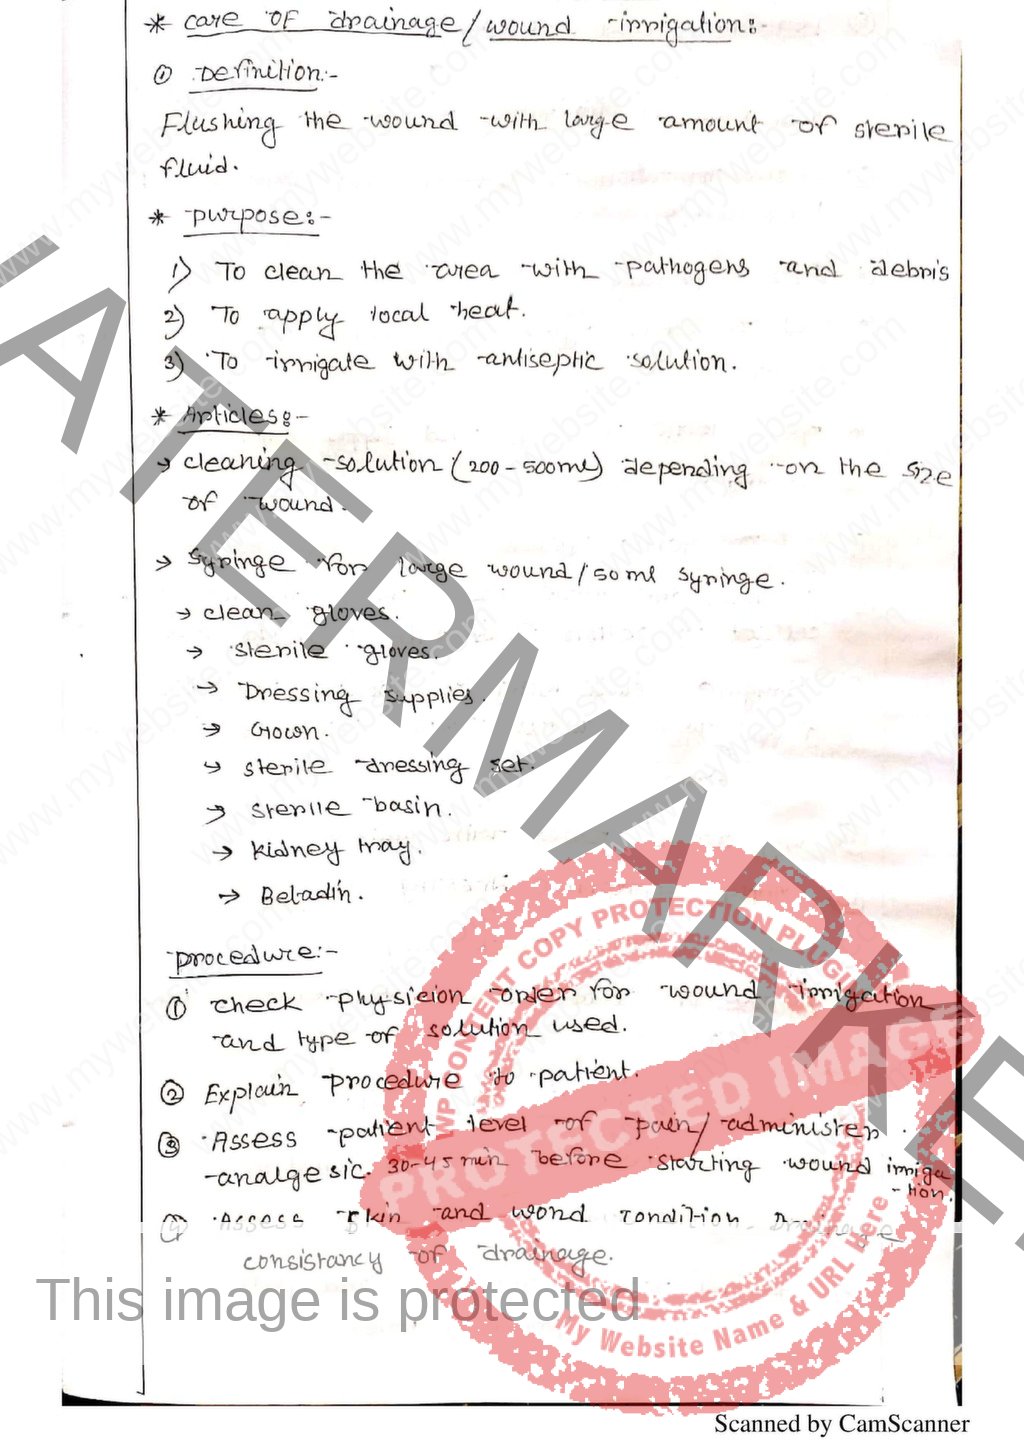 * care of drainage/wound irrigation:-
① Definition:-
Flushing the wound with large amount of sterile
fluid.
* purpose:-
1) To clean the area with pathogens and debris
2) To apply local heat.
3) To irrigate with antiseptic solution.
* Articles:-
→ cleaning solution (200-500ml) depending on the size
of wound.
→ Syringe for large wound/50 ml syringe.
→ clean gloves.
→ sterile gloves.
→ Dressing supplies.
→ Gown.
→ sterile dressing set.
→ sterile basin.
→ kidney tray.
→ Betadin.
procedure:-
① check physicion order for wound irrigation
and type of solution used.
② Explain procedure to patient.
③ Assess patient level of pain/administer
analgesic. 30-45 min before starting wound irriga
-tion.
④ Assess skin and wond condition Drainage
consistancy of drainage.
WATERMARKE
WP CONTENT COPY PROTECTION PLUGIN
PROTECTED IMAGE
My Website Name & URL Here
This image is protected
www.mywebsite.com
Scanned by CamScanner